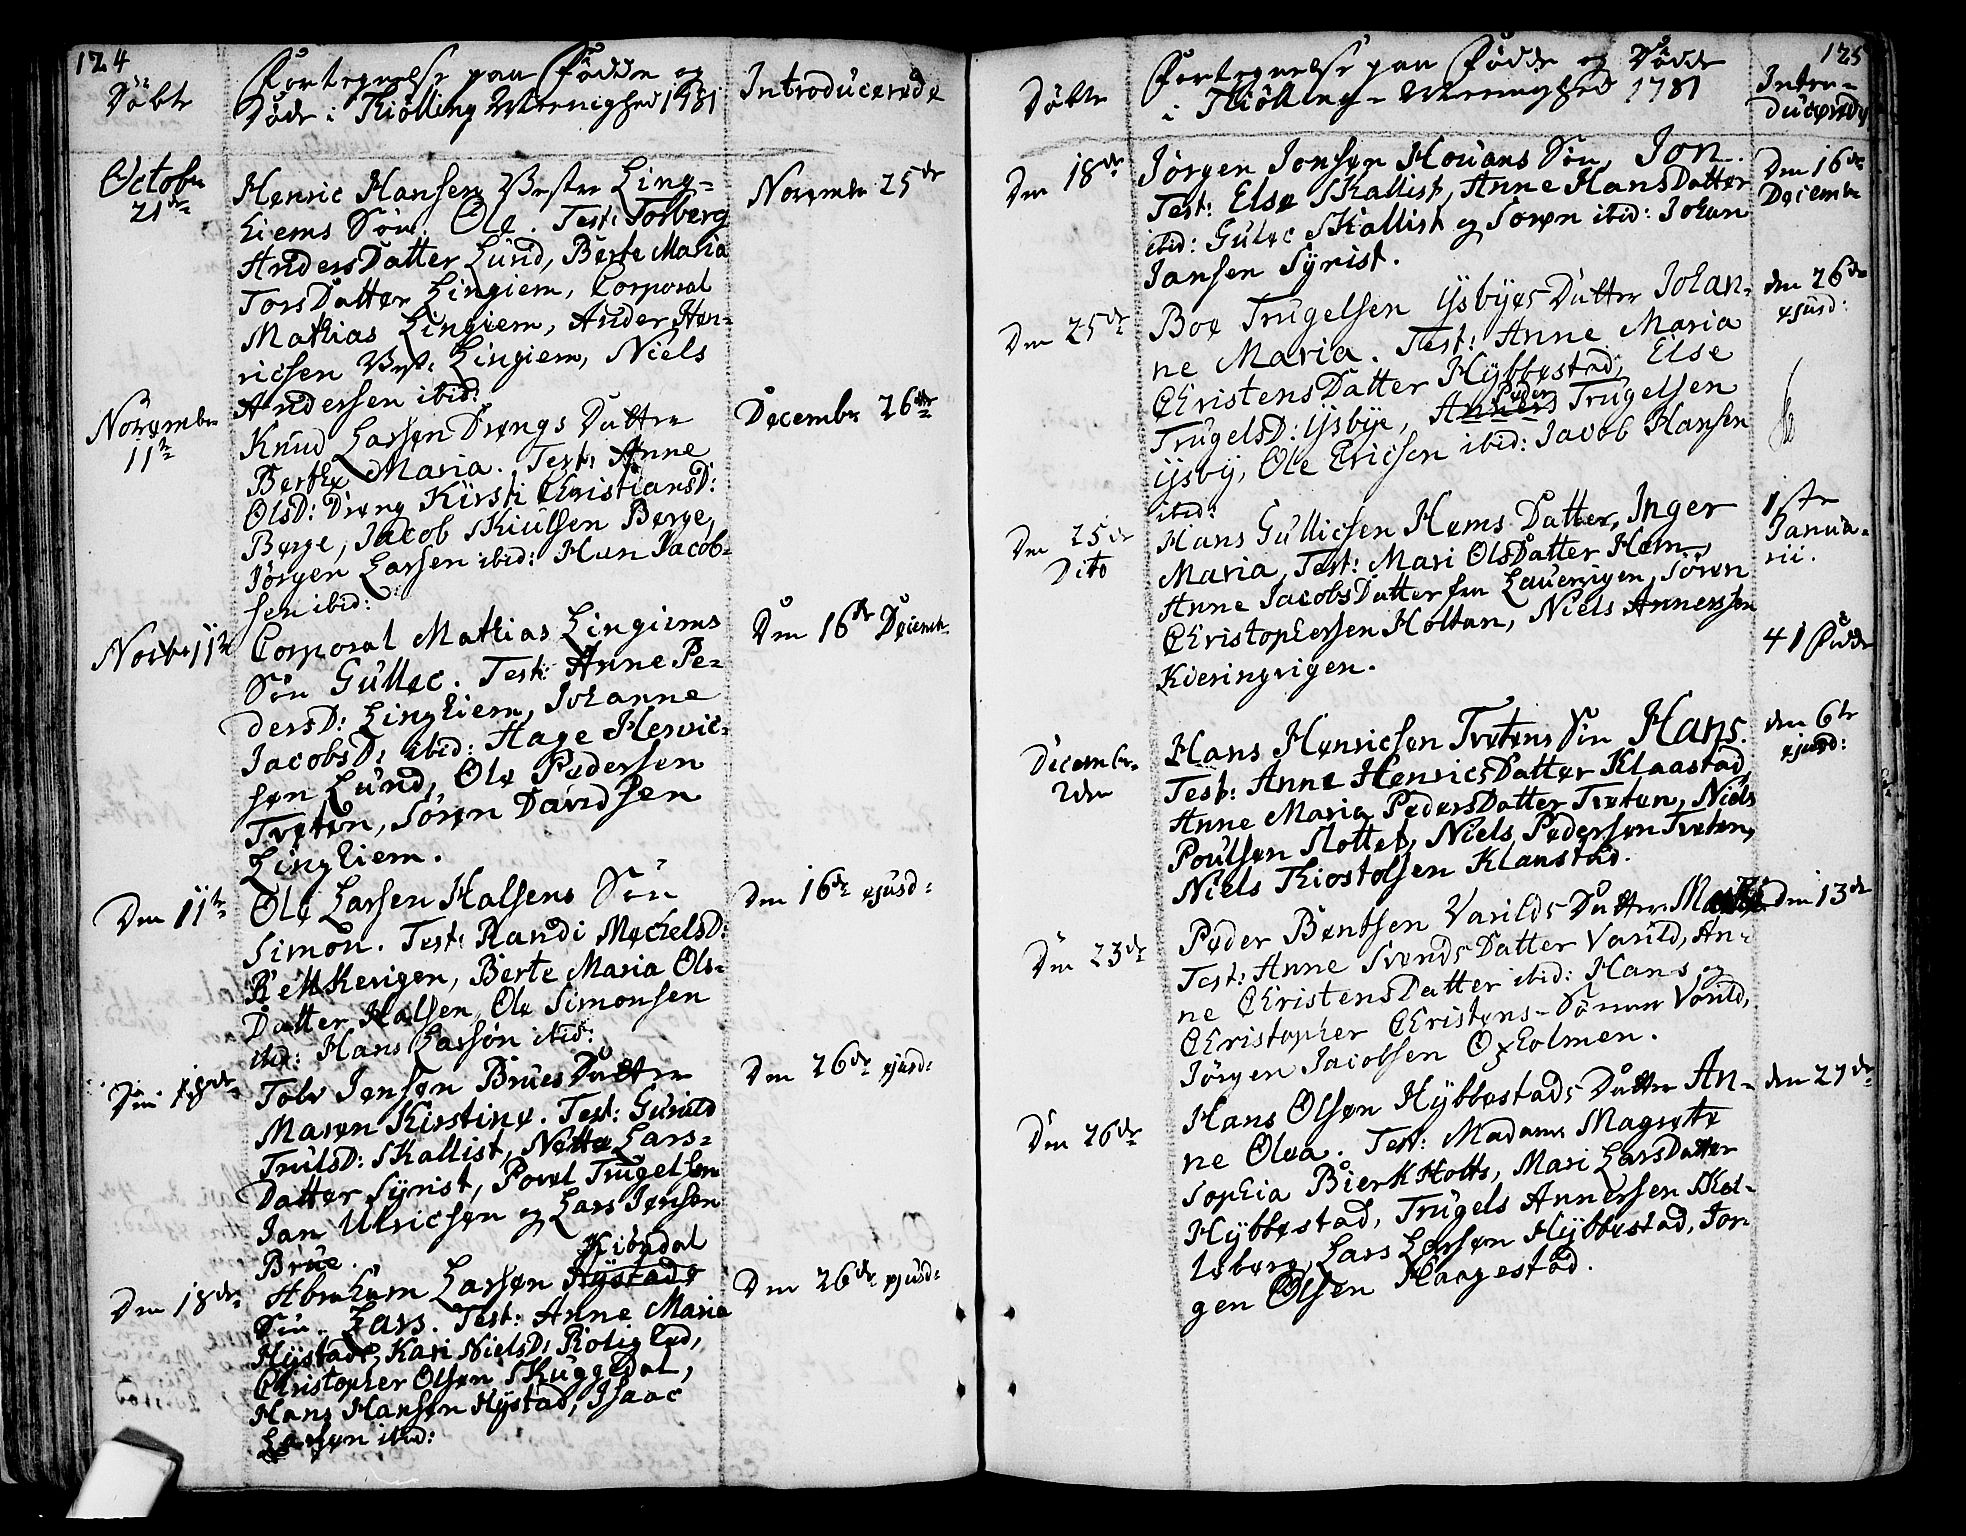 124
Döbte
Fortegnelse paa Födde og
Döde i Tiölling Menighed 1781
Introducerede
Octobr
21de
Henric Hansen Vestre Ling-
hiems Sön. Ole. Test: Torberg
AndersDatter Lund, Berte Maria
TorsDatter Lingiem, Corporal
Mathias Lingiem, Ander Hen-
ricsen Vest: Lingiem, Niels
Andersen ibid:
November 25de
November
11te
Knud Larsen Drengs Datter
Berthe Maria. Test: Anne
OlsD: Dreng Kirsti ChristiansD:
Berge, Jacob Skiulsen Berge,
Jörgen Larsen ibid: Han Jacob-
sen ibid:
December 26de
Novbr 11te
Corporal Mathias Lingiems
Sön Gullec. Test: Anne Pe-
dersD: Linghiem, Johanne
JacobsD: ibid: Hage Henric-
sen Lund, Ole Pedersen
Tveten, Sören Davidsen
Linghiem.
Den 16de Decemb.
Den 11te
Ole Larsen Halsens Sön
Simon. Test: Randi MechelsD:
Rekkevigen, Berte Maria Ols-
Datter Halsen, Ole Simonsen
ibid: Hans Larsön ibid:
Den 16de ejusd:
Den 18de
Tolv Jensen Brues Datter
Maren Kirstine. Test: Gunild
TrulsD: Skallist, Nette Lars-
Datter Syrist, Povel Trugelsen
Jan Ulricsen og Lars Jensen
Brue.
Den 26de ejusd:
Den 18de
Kiöndal
Abraham Larsen Hystads
Sön. Lars. Test: Anne Marie
Hystad, Kari NielsD: Rolighed,
Christopher Olsen Skuggedal,
Hans Hansen Hystad, Isaac
Larsen ibid:
Den 26de ejusd:
125
Döbte
Fortegnelse paa Födde og Dödde
i Tiölling-Menighed 1781
Intro-
ducerede
Den 18de
Jörgen Jonsen Hovans Sön, Jon.
Test: Else Skallist, Anne HansDatter
ibid: Gulec Skallist og Soren ibid: Johan
Jansen Syrist.
Den 16de
Decemb
Den 25de
Boe Trugelsen Ijsbyes Datter Johan-
ne Maria. Test: Anne Maria
ChristensDatter Hybbestad, Else
Peder
TrugelsD: Ijsbye, Anners Trugelsen
Ijsby, Ole Ericsen ibid: Jacob Hansen
ibid:
den 26de
ejusd:
Den 25de
Dito
Hans Gullicsen Hems Datter, Inger
Maria, Test: Mari OlsDatter Hem,
Anne JacobsDatter fra Lauervigen, Sören
Christophersen Holtan, Niels Annerssen
Kieringvigen.
1ste
Janua-
rii.
41 Födde
Decembr.
2den
Hans Henricsen Tvetens Sön Hans.
Test: Anne HenricsDatter Klaastad,
Anne Maria PedersDatter Tveten, Niels
Poulsen Slottet, Niels Pedersen Tveten,
Niels Tiostolsen Klaastad.
den 6te
ejusd:
Den 23de
Peder Bentsen Varilds Datter
Test: Anne SvendsDatter Varild, An-
ne ChristensDatter ibid: Hans og
Christopher Christens-Sönner Varild,
Jörgen Jacobsen Oxholmen.
den 13de
Den 26de
Hans Olsen Hybbestads Datter An-
ne Olea. Test: Madame Magrete
Sophia BierkHolts, Mari LarsDatter
Hybbestad, Trugels Annersen Skal-
leberg, Lars Larsen Hybbestad, Jor-
gen Olsen Haagestad.
den 27de